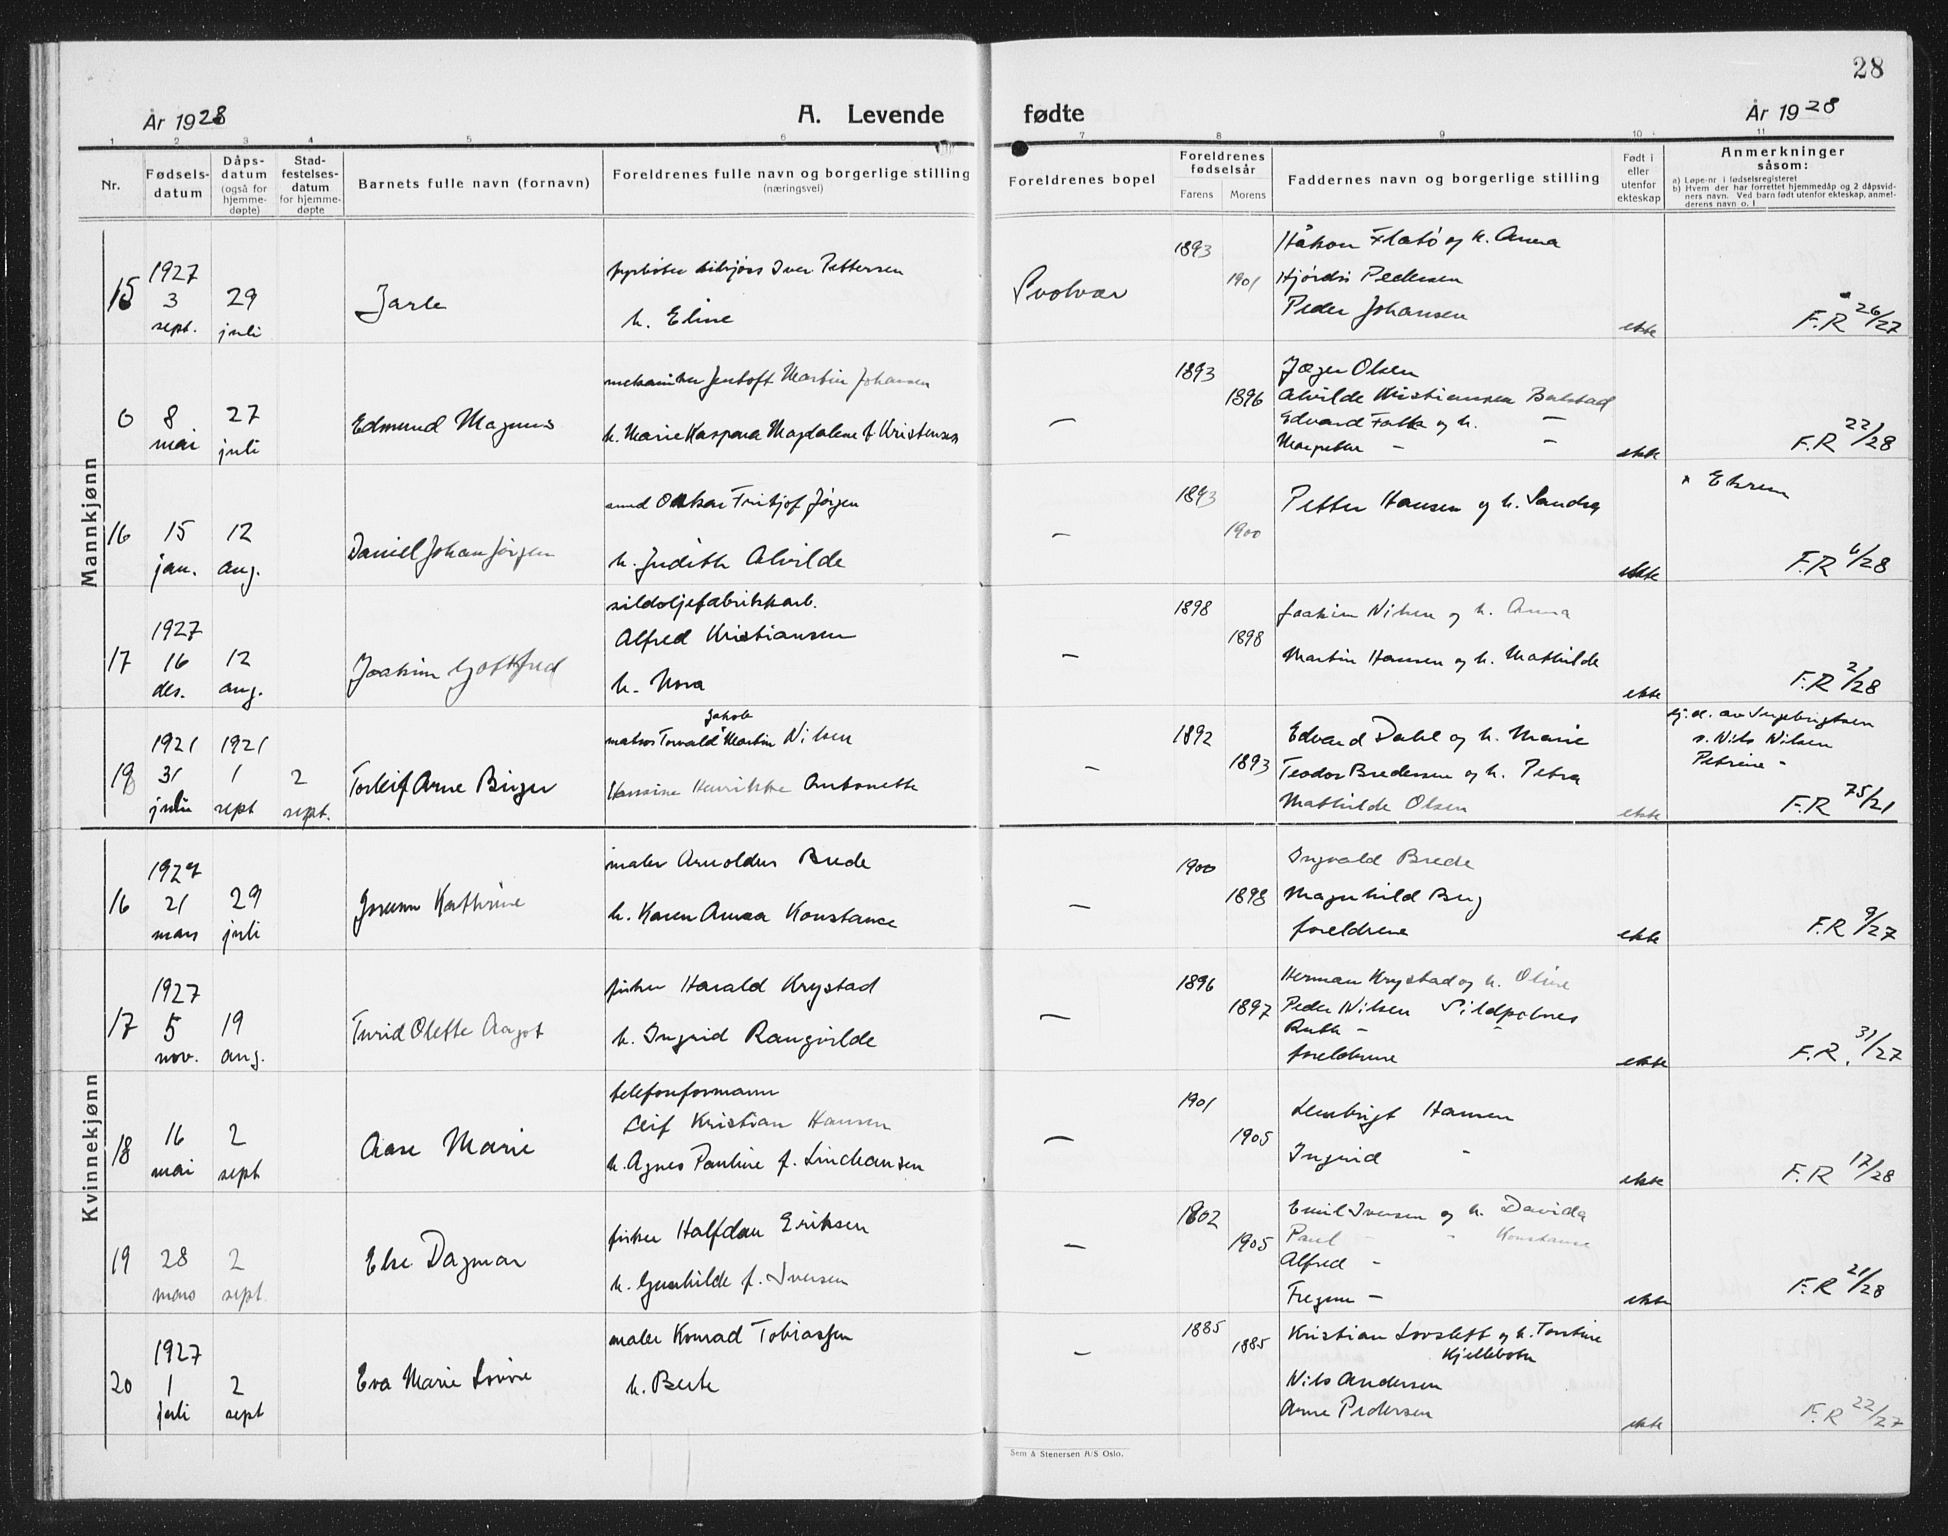 28
År 1928
A. Levende
fødte
År 1928
1 2 3 4 5 6 7 8 9 10 11
Nr.
Fødsels-
datum
Dåps-
datum
(også for
hjemme-
døpte)
Stad-
festelses-
datum
for hjemme-
døpte
Barnets fulle navn (fornavn)
Foreldrenes fulle navn og borgerlige stilling
(næringsvel)
Foreldrenes bopel
Foreldrenes
fødselsår
Farens
Morens
Faddernes navn og borgerlige stilling
Født i
eller
utenfor
ekteskap
Anmerkninger
såsom:
a) Løpe-nr i fødselsregisteret
b) Hvem der har forrettet hjemmedåp og 2 dåpsvid-
ners navn. Ved barn født utenfor ekteskap, anmel-
derens navn o. l
Mannkjønn
15
1927
3
sept.
29
juli
Jarle
Iver Pettersen
h. Eline
Svolvær
1893
1901
Håkon Flatö og h. Anna
Hjørdis Pedersen
Peder Johansen
ekte
F.R 26/27
0
8
mai
27
juli
Edmund Magnus
mekaniker Jentoft Martin Johansen
h. Marie Kaspara Magdalene f. Kristensen
–
1893
1896
Jæger Olsen
Alvilde Kristiansen Balstad
Edvard Falk og h. –
Margrethe – –
ekte
F.R 22/28
16
15
jan.
12
aug.
Daniel Johan Jørgen
smed Oskar Fritjof Jørgen
h. Judith Alvilde
–
1893
1900
Petter Hansen og h. Sandra
ekte
× Ekrem
F.R 6/28
17
1927
16
des.
12
aug.
Joakim Gottfred
sildoljefabrikkarb.
Alfred Kristiansen
h. Nora
–
1898
1898
Joakim Nilsen og h. Anna
Martin Hansen og h. Mathilde
ekte
F.R 2/28
18
1921
31
juli
1921
1
sept
2
sept.
Torleif Arne Birger
Jakob
matros Torvald Martin Nilsen
Hansine Henrikke Antonette
–
1892
1893
Edvard Dahl og h. Marie
Teodor Bredersen og h. Petra
Mathilde Olsen
ekte
hj.d. av Ingebrigtsen
v. Nils Nilsen
Petrine –
F.R 75/21
Kvinnekjønn
16
1927
21
mars
29
juli
Jorunn Kathrine
maler Arnoldus Brede
h. Karen Anna Konstance
–
1900
1898
Ingvald Brede
Magnhild Berg
foreldrene
ekte
F.R 9/27
17
1927
5
nov.
19
aug.
Turid Olette Aagot
fisker Harald Krystad
h. Ingrid Rangvilde
–
1896
1897
Herman Krystad og h. Oline
Peder Nilsen Sildpolnes
Ruth – –
foreldrene
ekte
F.R. 31/27
18
16
mai
2
sept
Aase Marie
telefonformann
Leif Kristian Hansen
h. Agnes Pauline f. Linchausen
–
1901
1905
Hansen
Ingrid –
ekte
F.R 17/28
19
28
mars
2
sept.
Else Dagmar
fisker Halfdan Eriksen
h. Gunhilde f. Iversen
–
1902
1905
Emil Iversen og h. Davida
Paul – – Konstanse
Alfred –
–
ekte
F.R 21/28
20
1927
1
juli
2
sept
Eva Marie
maler Konrad Tobiassen
h. Berte
–
1885
1885
Kristian og h.
Kjellebotn
Nils Andersen
Arne Pedersen
ekte
F.R 22/27
Sem & Stenersen A/S Oslo.